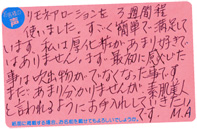 お客様の声
リモキアローションを3週間程
使いました。すごく簡単で満足して
います。私は厚化粧があまり好きで
ありません。まず、最初に感じた
事は吹出物がでなくなった事です。
まだ、あまり分かりませんが、素肌美人
と言われるようにお手入れしていきたい
です。 M.A